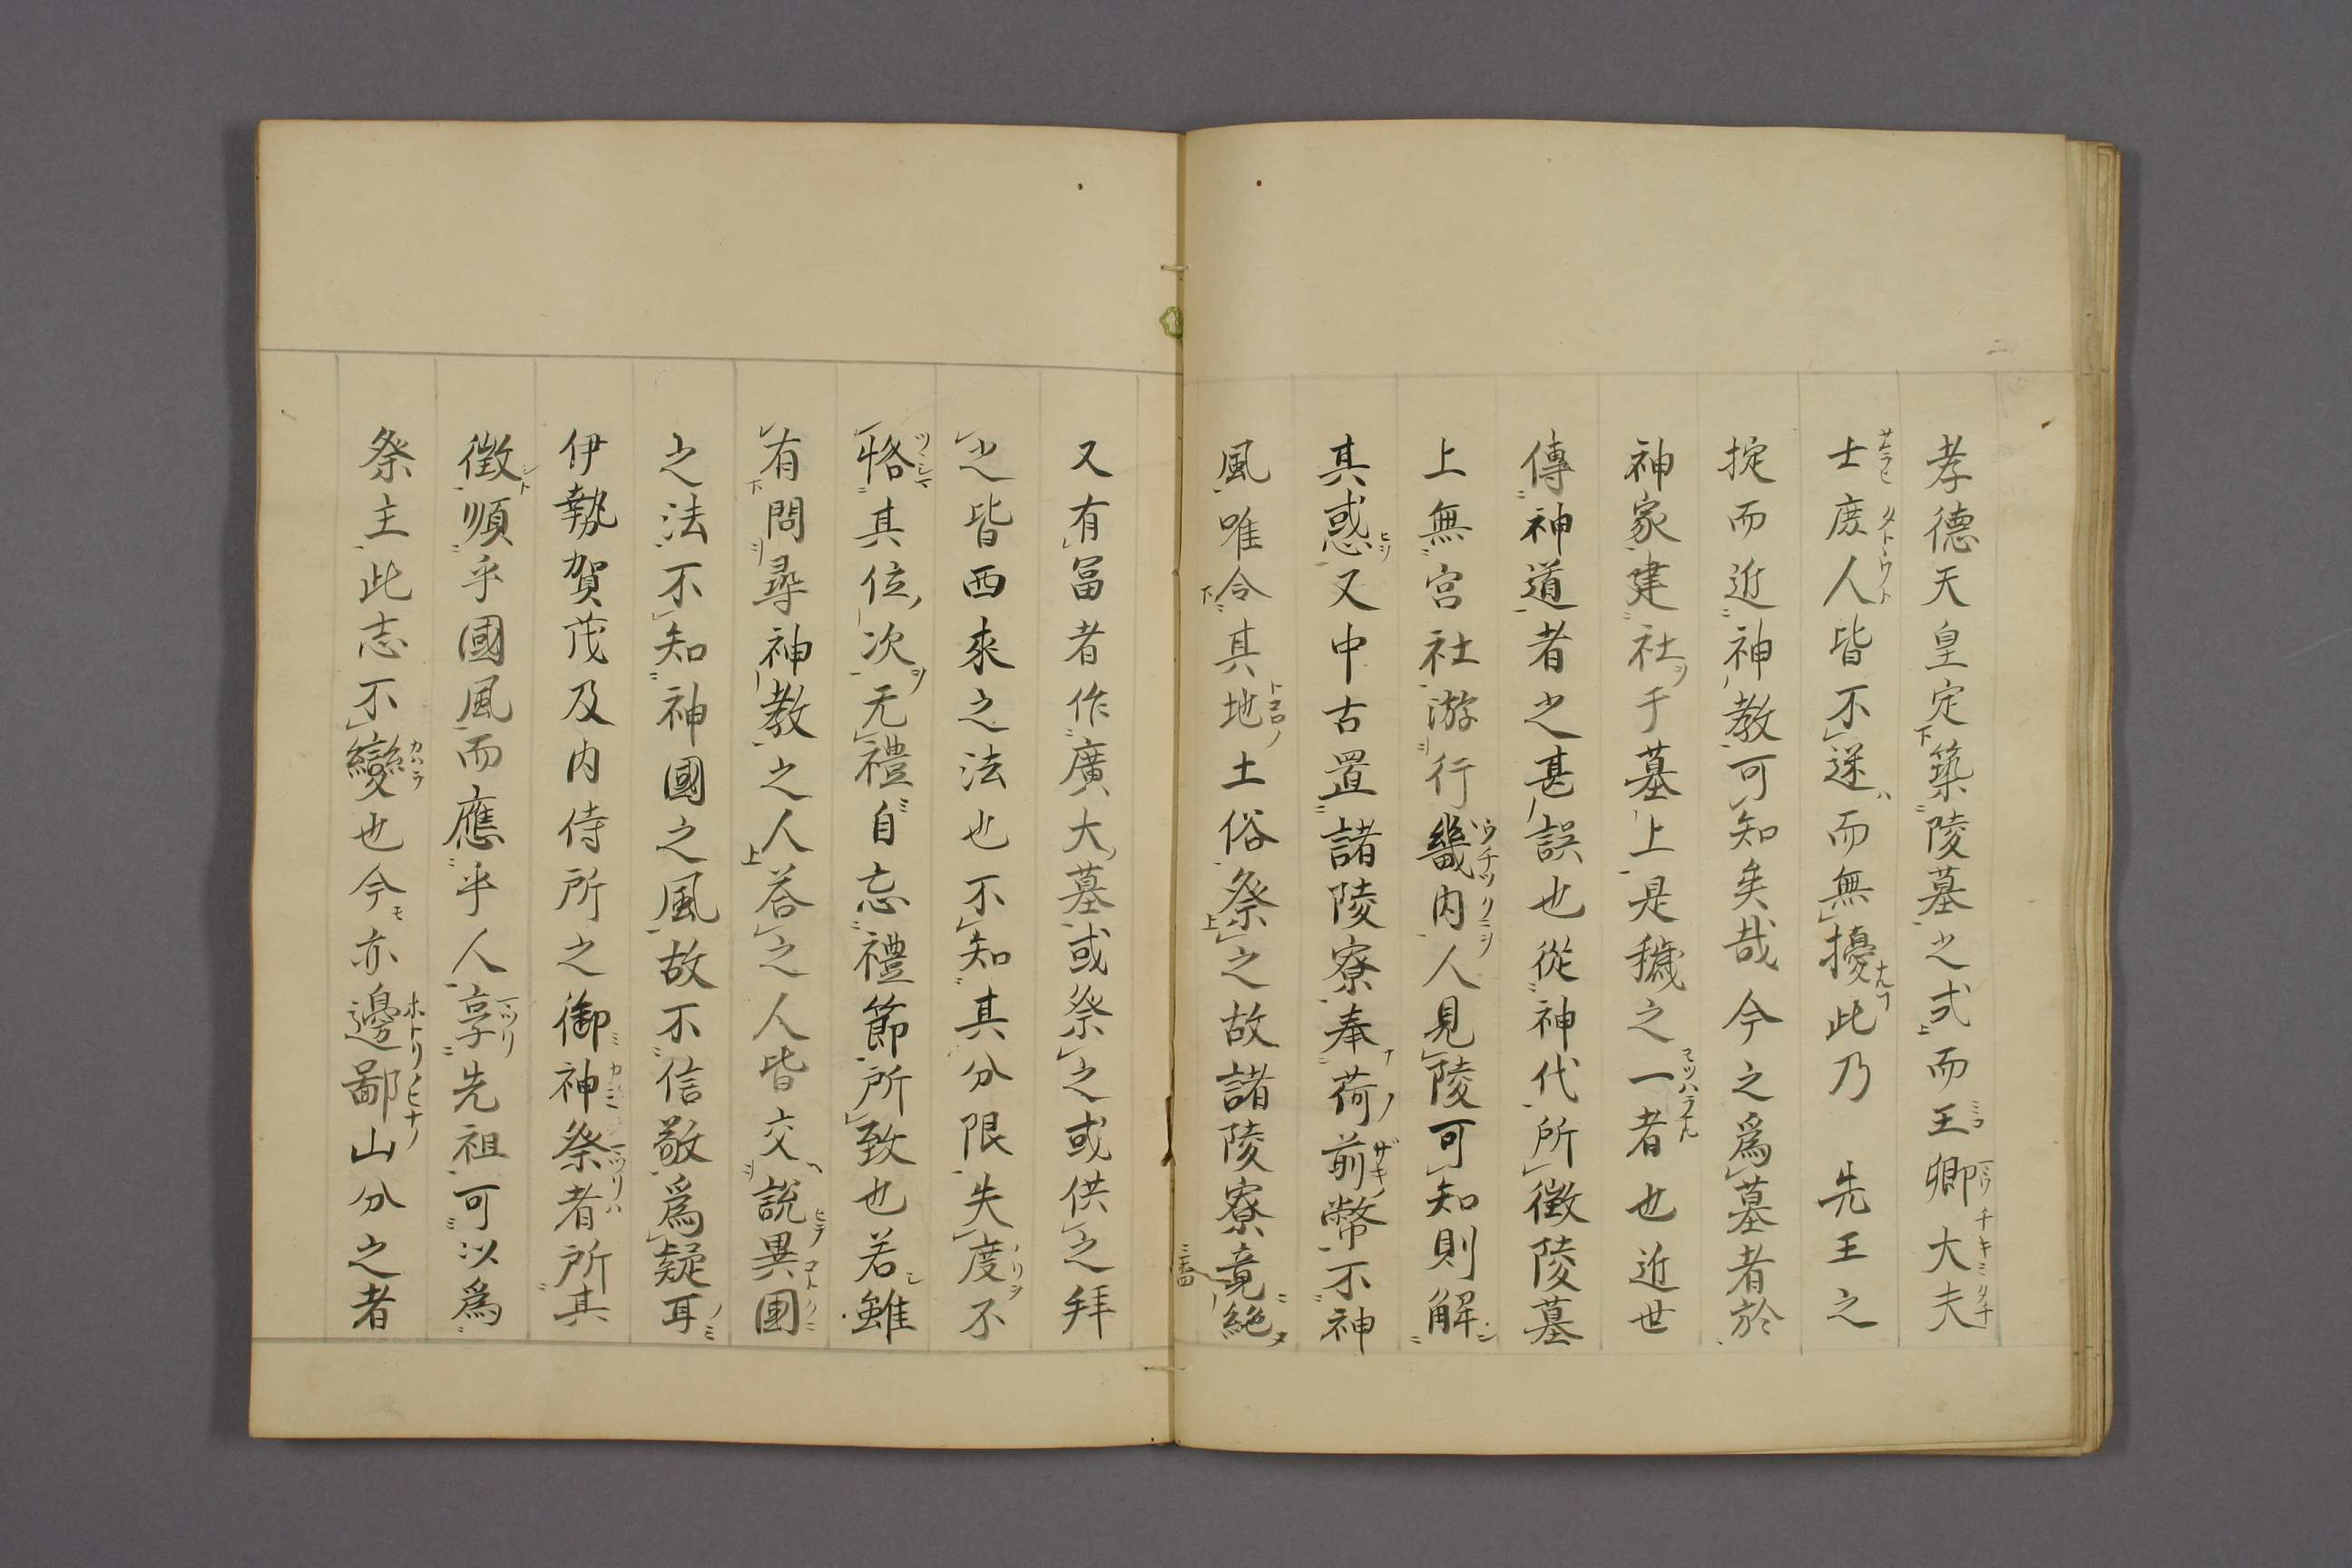 孝德天皇定築陵墓之式而王卿大夫
士庶人皆不遂而無擾此乃　先王之
掟而近神教可知矣哉今之爲墓者於
神家建社于墓上是穢之一者也近世
傳神道者之甚誤也從神代所徵陵墓
上無宮社游行畿内人見陵可知則解
其惑又中古置諸陵寮奉荷前幣不神
風唯令其地土俗祭之故諸陵寮竟絶
又有冨者作廣大墓或祭之或供之拜
之皆西來之法也不知其分限失度不
恪其位次无禮自忘禮節所致也若雖
有問尋神教之人答之人皆交說異國
之法不知神國之風故不信敬爲疑耳
伊勢賀茂及内侍所之御神祭者所其
徵順乎國風而應乎人享先祖可以爲
祭主此志不變也今亦邊鄙山分之者